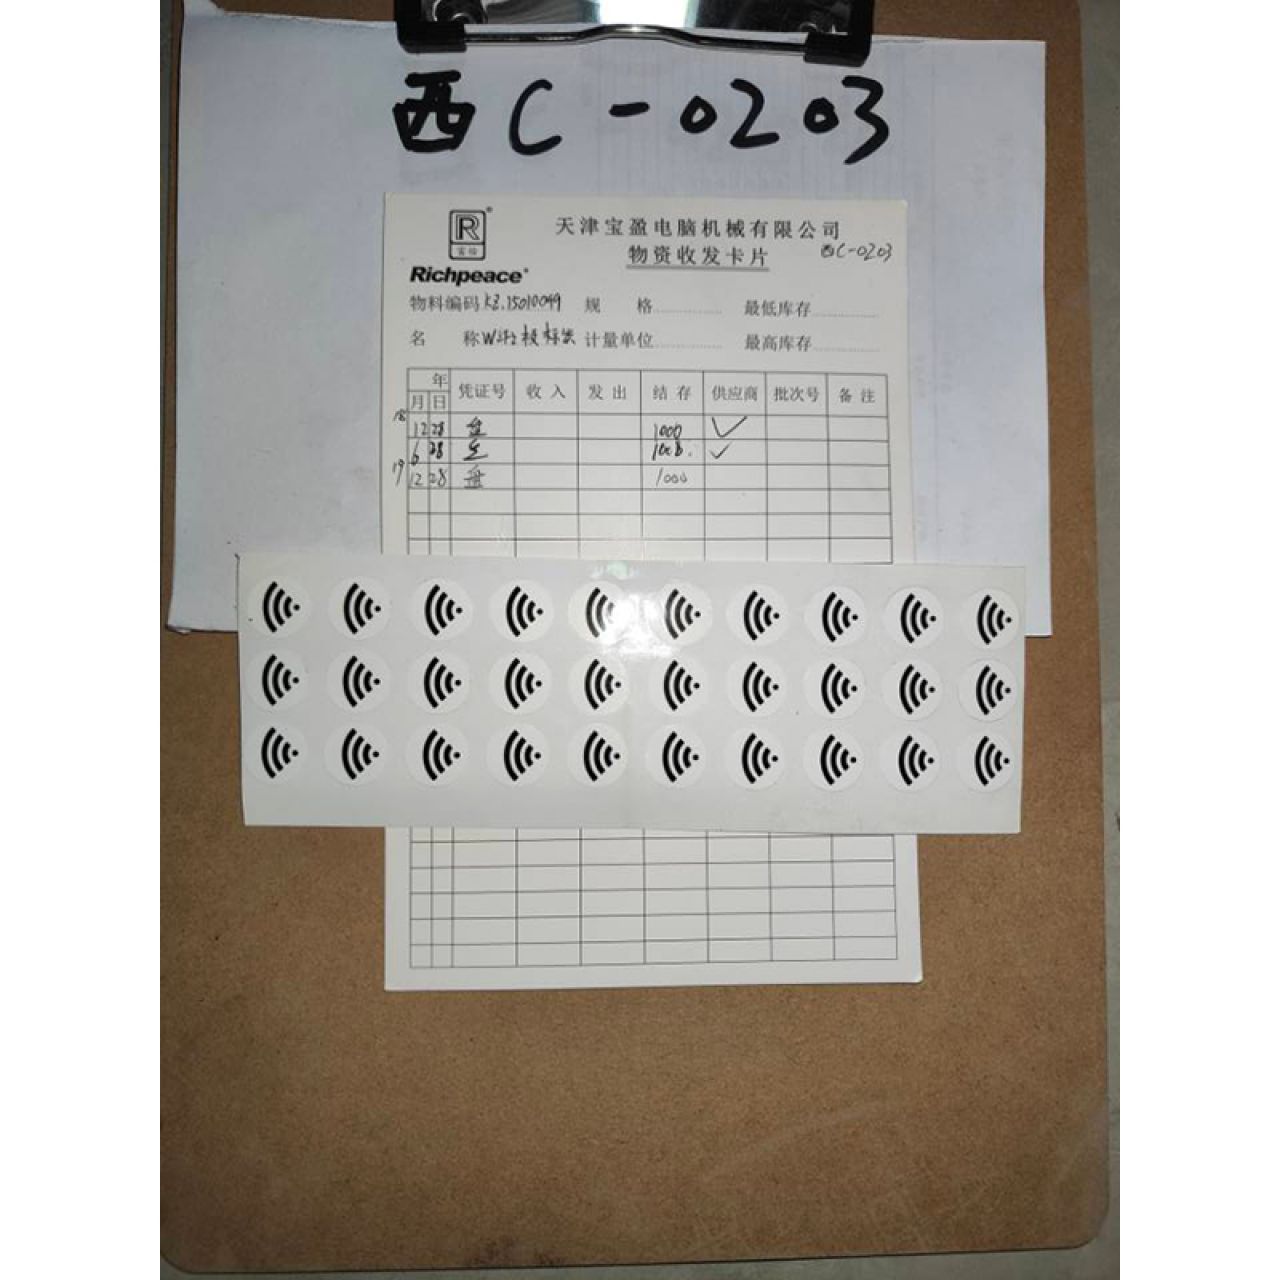 西C-0203
R®
富怡
Richpeace®
天津宝盈电脑机械有限公司
物资收发卡片
西C-0203
物料编码 KZ.15010049 规 格 最低库存
名 称 Wifi 板标签 计量单位 最高库存
年 凭证号 收入 发出 结存 供应商 批次号 备注
月 日
18 12 28 盘 1000 ✓
6 28 1000. ✓
19 12 28 盘 1000